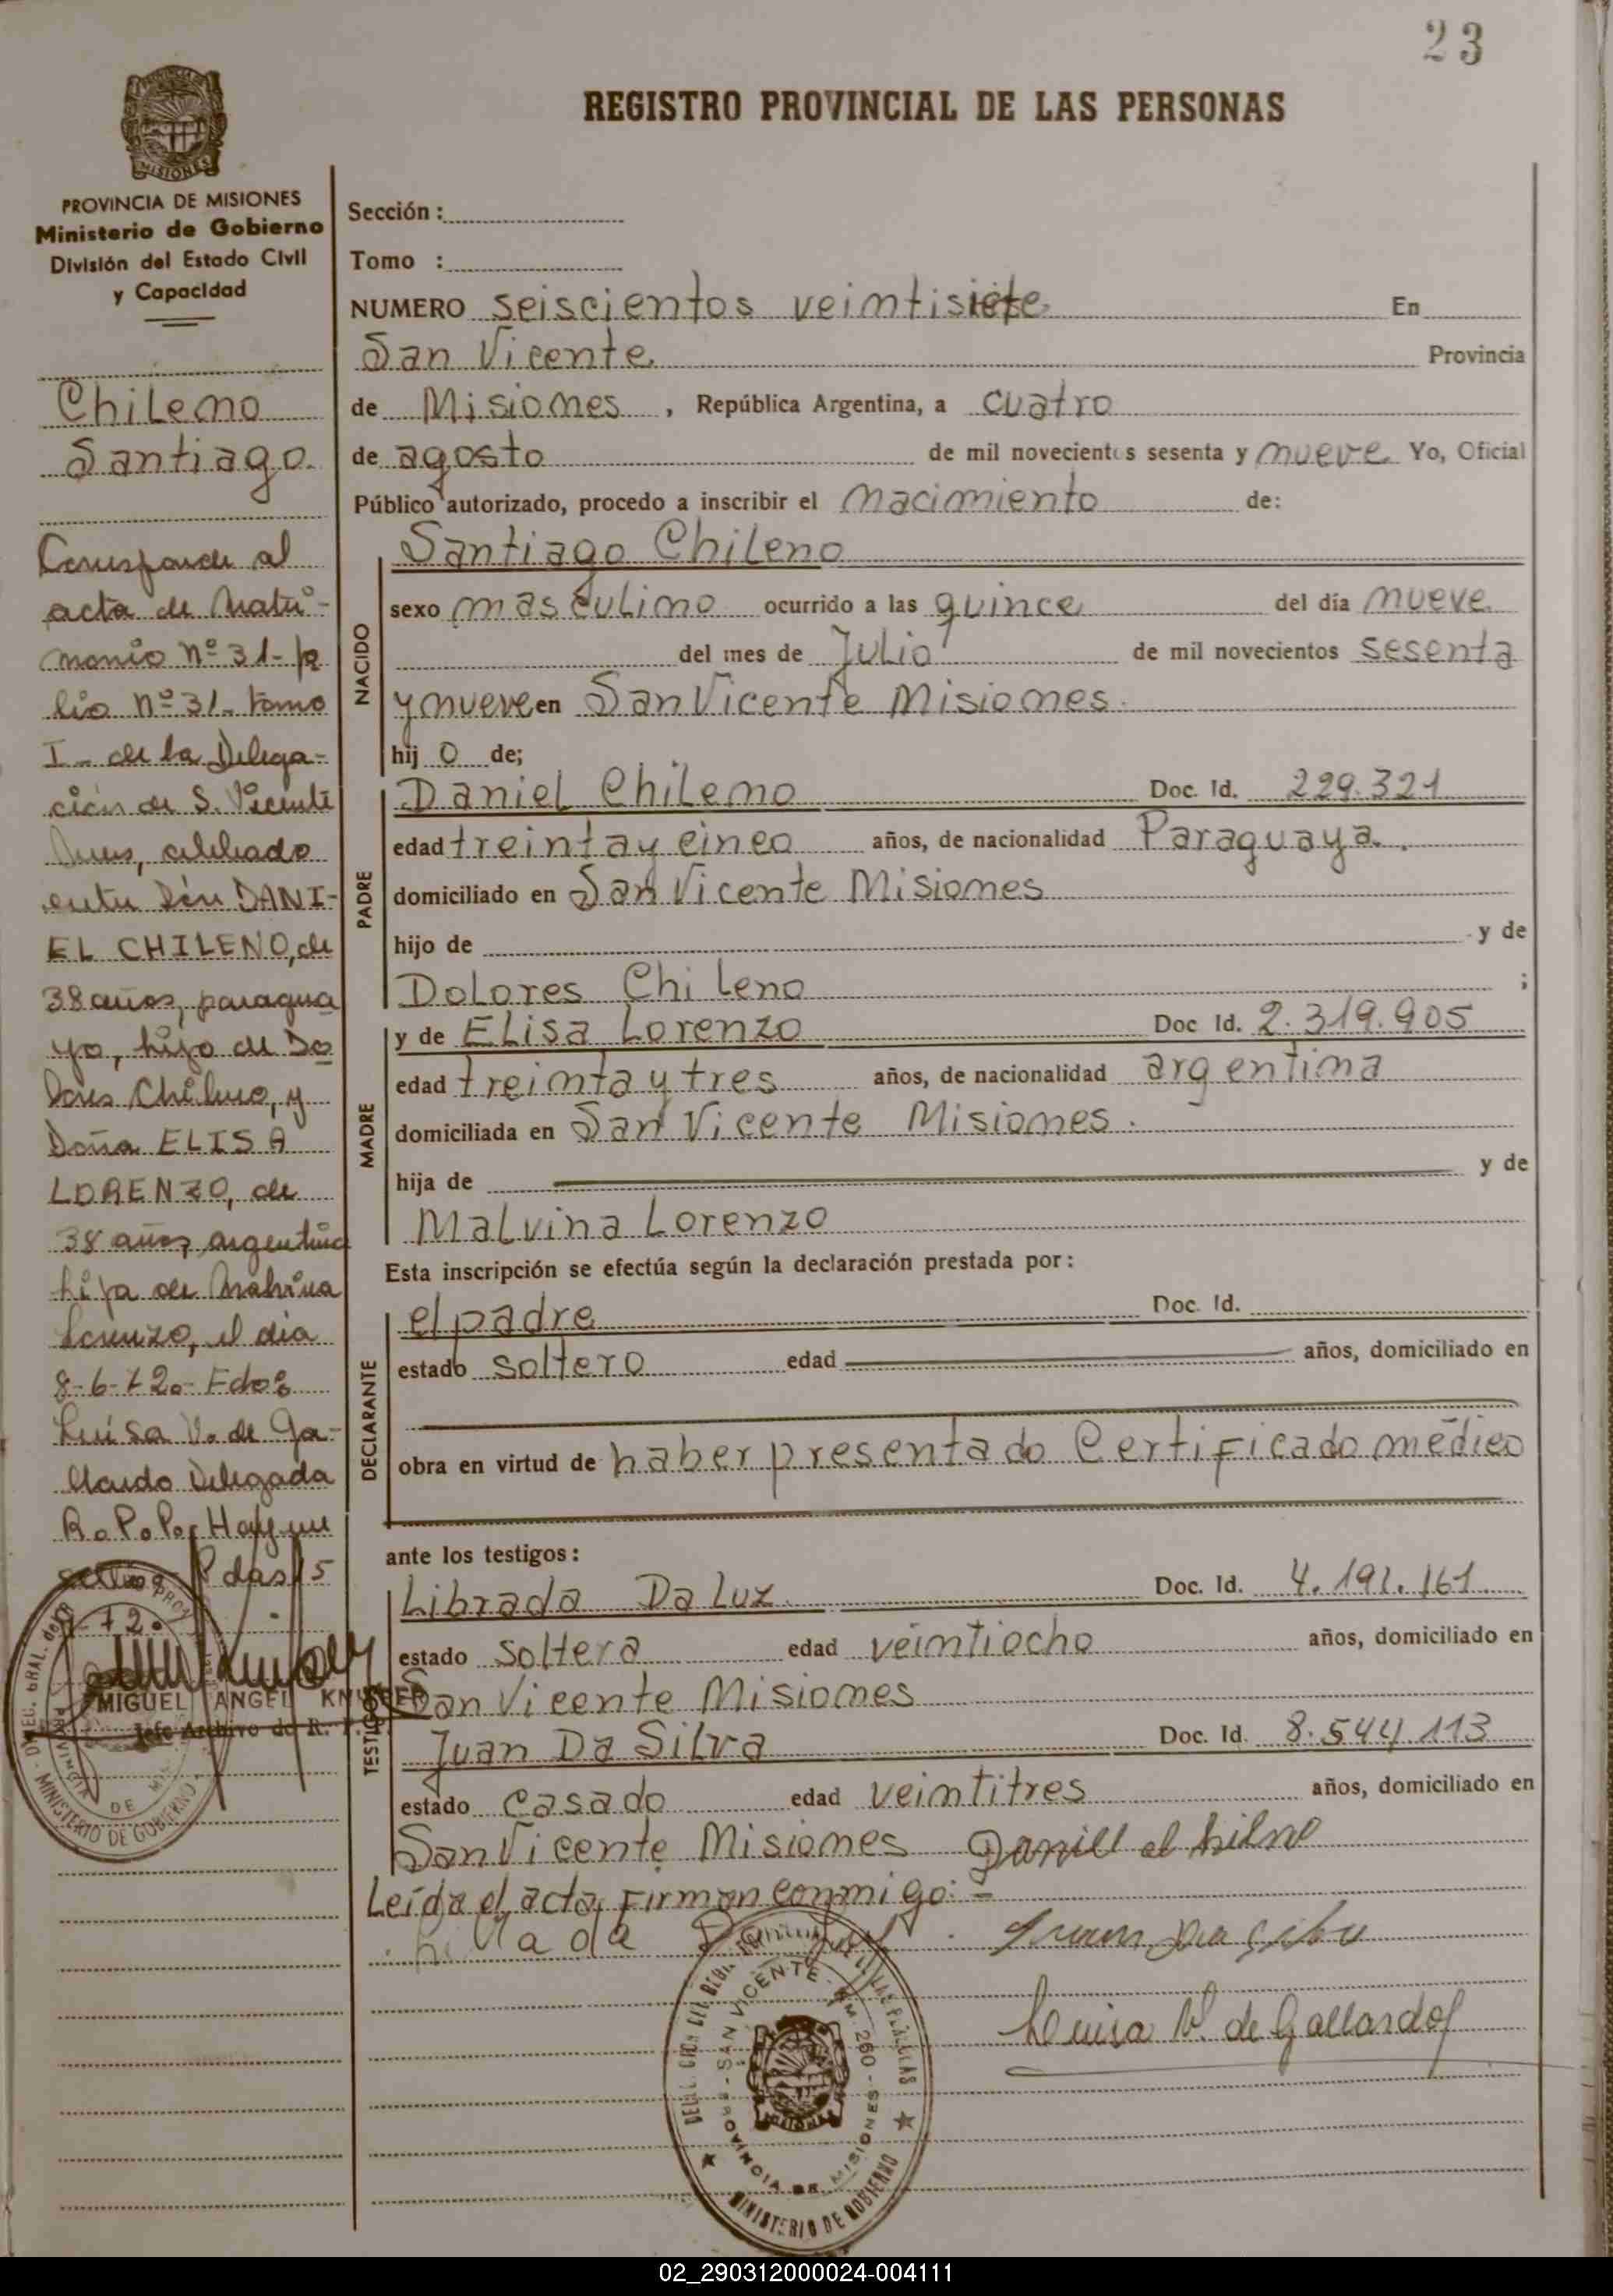 23
REGISTRO PROVINCIAL DE LAS PERSONAS
MISIONES
PROVINCIA DE MISIONES
Ministerio de Gobierno
División del Estado Civil
y Capacidad
Chileno
Santiago
Corresponde al
acta de Matri-
monio nº 31- fo
lio nº 31- tomo
I - de la Delega-
ción de S. Vicente
Mnes, celebrado
entre Dón DANI-
EL CHILENO, de
38 años, paragua
yo, hijo de Do
lores Chileno, y
Doña ELISA
LORENZO, de
38 años, argentina
hija de Malvina
Lorenzo, el día
8-6-72- Fdo:
Luisa V. de Ga-
llardo Delegada
R.P.P. Hay un
sello Pdas 15
72.
MIGUEL ANGEL
Jefe Archivo de R. P. P.
MINISTERIO DE GOBIERNO
Sección:
Tomo :
NUMERO seiscientos veintisiete En
San Vicente Provincia
de Misiones, República Argentina, a cuatro
de agosto de mil novecientos sesenta y nueve Yo, Oficial
Público autorizado, procedo a inscribir el nacimiento de:
NACIDO
Santiago Chileno
sexo masculino ocurrido a las quince del día nueve
del mes de Julio de mil novecientos sesenta
y nueve en San Vicente Misiones.
hij o de;
PADRE
Daniel Chileno Doc. Id. 229.321
edad treinta y cinco años, de nacionalidad Paraguaya.
domiciliado en San Vicente Misiones
hijo de y de
Dolores Chileno ;
MADRE
y de Elisa Lorenzo Doc Id. 2.319.905
edad treinta y tres años, de nacionalidad argentina
domiciliada en San Vicente Misiones.
hija de y de
Malvina Lorenzo
Esta inscripción se efectúa según la declaración prestada por:
DECLARANTE
el padre Doc. Id.
estado soltero edad años, domiciliado en
obra en virtud de haber presentado Certificado médico
ante los testigos:
TESTIGOS
Librada Da Luz Doc. Id. 4.191.161
estado soltera edad veintiocho años, domiciliado en
San Vicente Misiones
Juan Da Silva Doc. Id. 8.544.113
estado casado edad veintitres años, domiciliado en
San Vicente Misiones
Leída el acta, firman conmigo:-
Luisa V. de Gallardo
SAN VICENTE
260
PROVINCIA DE MISIONES
MINISTERIO DE GOBIERNO
02_290312000024-004111